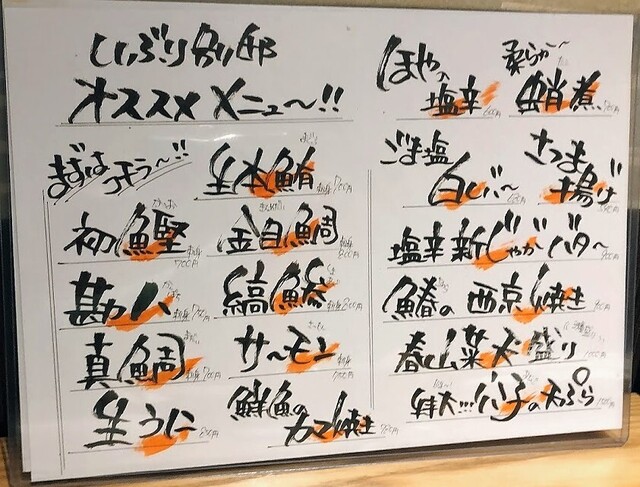 しいぶり別邸
オススメメニュー!!
まずはコチラ〜!!
生本鮪 刺身 700円
初鰹 刺身 700円
金目鯛 刺身 800円
勘八 刺身 700円
縞鯵 刺身 800円
真鯛 刺身 700円
サーモン 刺身 700円
生うに 800円
鮮魚のカマ焼き 780円
ほやの塩辛
柔らか〜蛸煮
ごま塩白レバー
さつま揚げ
塩辛新じゃがバター
鰆の西京焼き
春山菜天盛り
特大…の天ぷら